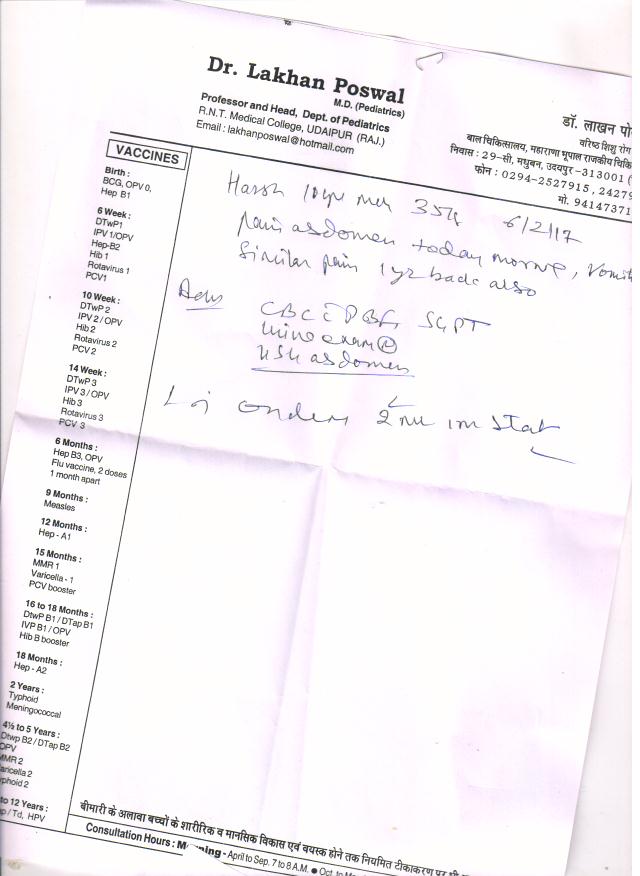 Dr. Lakhan Poswal
M.D. (Pediatrics)
Professor and Head, Dept. of Pediatrics
R.N.T. Medical College, UDAIPUR (RAJ.)
Email : lakhanposwal@hotmail.com
डॉ. लाखन पो
वरिष्ठ शिशु रोग
बाल चिकित्सालय, महाराणा भूपाल राजकीय चिकि
निवास : 29-सी, मधुबन, उदयपुर-313001 (
फोन : 0294-2527915, 2427
मो. 94147371
VACCINES
Birth :
BCG, OPV 0,
Hep B1
6 Week :
DTwP1
IPV 1/OPV
Hep-B2
Hib 1
Rotavirus 1
PCV1
10 Week :
DTwP 2
IPV 2 / OPV
Hib 2
Rotavirus 2
PCV 2
14 Week :
DTwP 3
IPV 3 / OPV
Hib 3
Rotavirus 3
PCV 3
6 Months :
Hep B3, OPV
Flu vaccine, 2 doses
1 month apart
9 Months :
Measles
12 Months :
Hep - A1
15 Months :
MMR 1
Varicella - 1
PCV booster
16 to 18 Months :
DtwP B1 / DTap B1
IVP B1 / OPV
Hib B booster
18 Months :
Hep - A2
2 Years :
Typhoid
Meningococcal
4½ to 5 Years :
Dtwp B2 / DTap B2
OPV
MMR 2
aricella 2
phoid 2
to 12 Years :
p / Td, HPV
Harsh 10 yr 35 6/2/17
pain abdomen today , Vomit
Similar pain 1 yr back also
Adv CBC c̄ PBF, SGPT
Urine exam (R)
USG abdomen
Inj 2 ml im stat
बीमारी के अलावा बच्चों के शारीरिक व मानसिक विकास एवं वयस्क होने तक नियमित टीकाकरण
Consultation Hours : M ning - April to Sep. 7 to 8 A.M. ● Oct. to